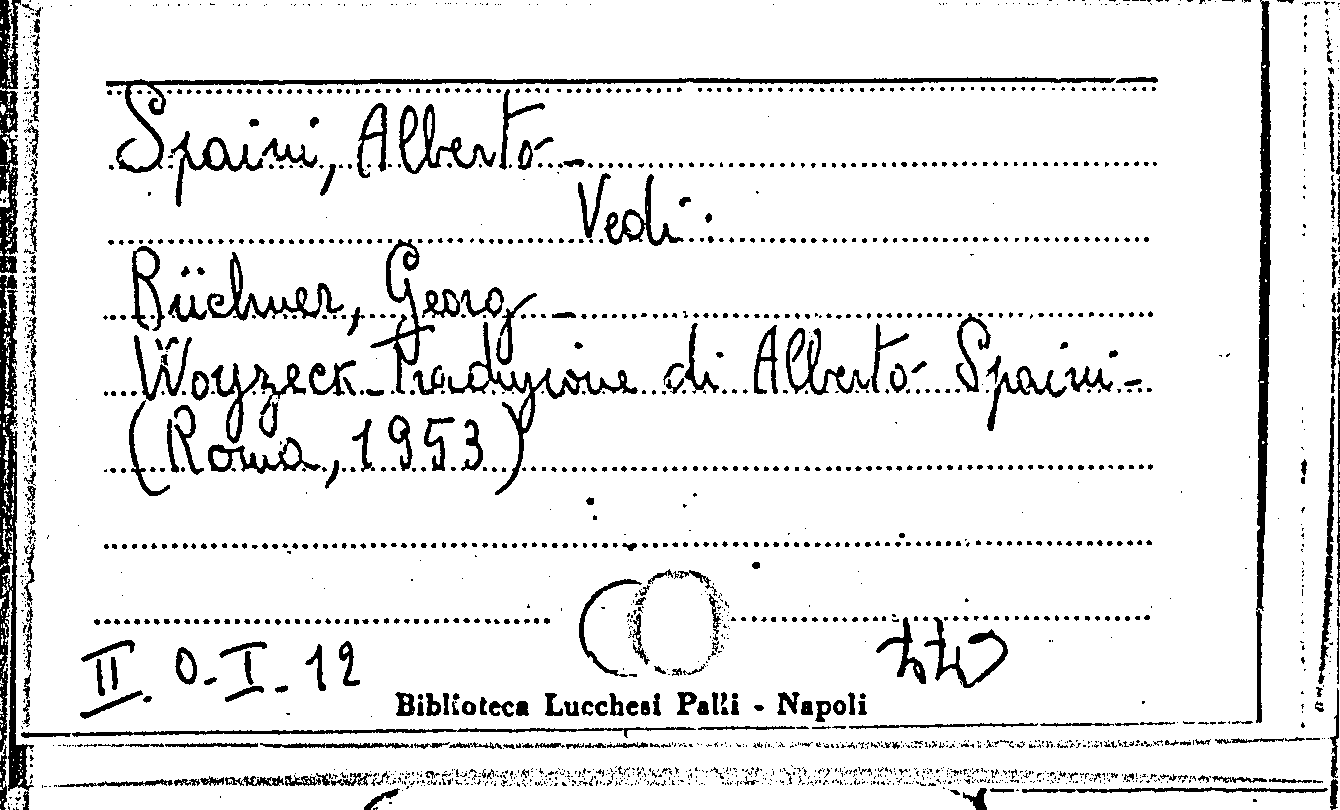 Spaini, Alberto -
Vedi:
Büchner, Georg -
Woyzeck - Traduzione di Alberto Spaini -
(Roma, 1953)
II. O-I-12
Biblioteca Lucchesi Palli - Napoli